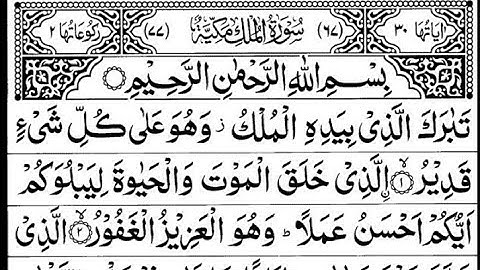 اٰیَاتُهَا ۳۰ (۶۷) سُوْرَةُ الْمُلْكِ مَكِّیَّةٌ (۷۷) رُكُوْعَاتُهَا ۲
بِسْمِ اللّٰهِ الرَّحْمٰنِ الرَّحِیْمِ
تَبٰرَكَ الَّذِیْ بِیَدِهِ الْمُلْكُ ز وَهُوَ عَلٰی كُلِّ شَیْءٍ
قَدِیْرُ ۙ﴿۱﴾ اِلَّذِیْ خَلَقَ الْمَوْتَ وَالْحَیٰوةَ لِیَبْلُوَكُمْ
اَیُّكُمْ اَحْسَنُ عَمَلًا ؕ وَهُوَ الْعَزِیْزُ الْغَفُوْرُ ۙ﴿۲﴾ الَّذِیْ